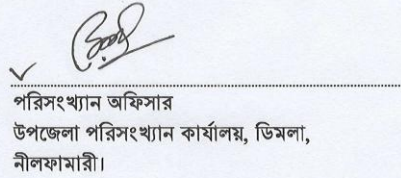 পরিসংখ্যান অফিসার
উপজেলা পরিসংখ্যান কার্যালয়, ডিমলা,
নীলফামারী।